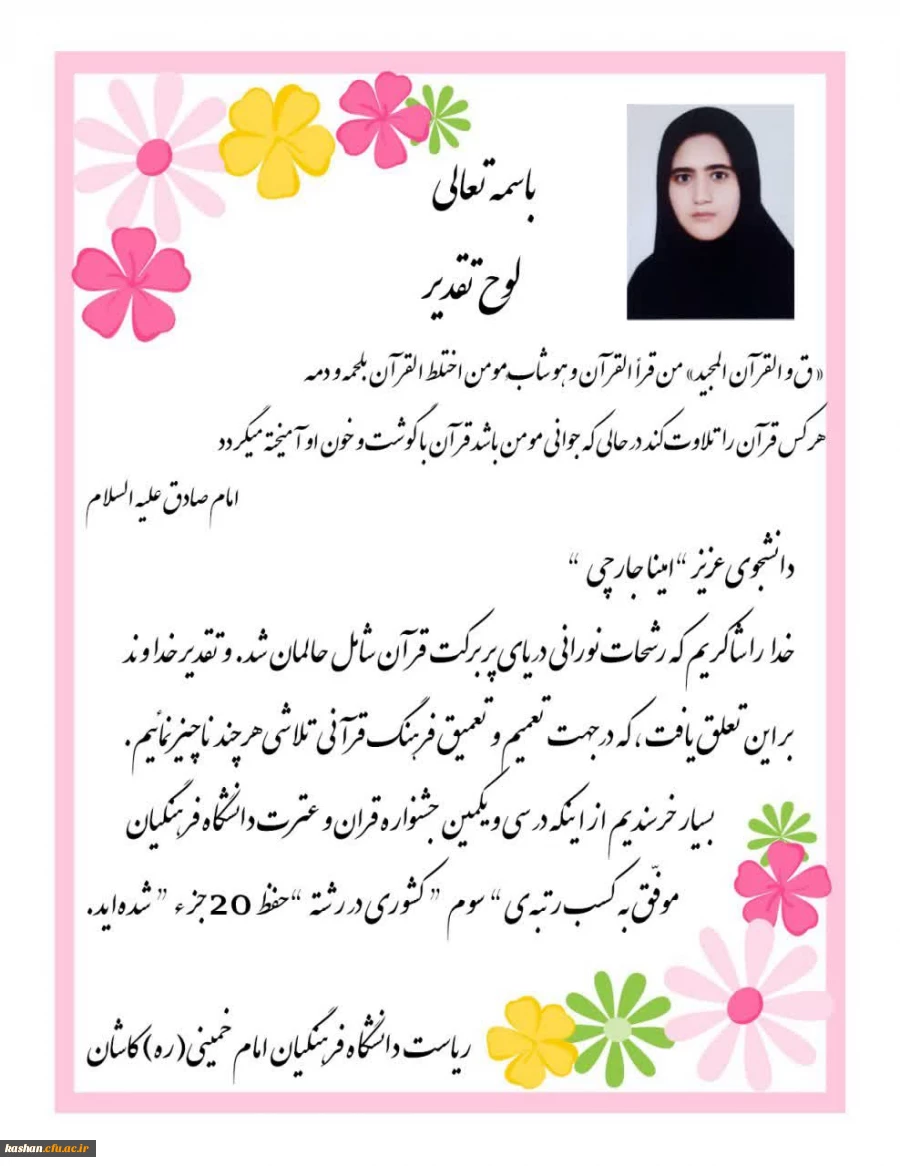 باسمه تعالی
لوح تقدیر
«ق و القرآن المجید» من قرأ القرآن و هو شاب مومن اختلط القرآن بلحمه و دمه
هر کس قرآن را تلاوت کند در حالی که جوانی مومن باشد قرآن با گوشت و خون او آمیخته میگردد
امام صادق علیه السلام
دانشجوی عزیز “امینا جارچی “
خدا را شاکریم که رشحات نورانی دریای پر برکت قرآن شامل حالمان شد. و تقدیر خداوند
بر این تعلق یافت، که در جهت تعمیم و تعمیق فرهنگ قرآنی تلاشی هر چند ناچیز نمائیم.
بسیار خرسندیم از اینکه در سی و یکمین جشنواره قران و عترت دانشگاه فرهنگیان
موفّق به کسب رتبه ی “ سوم ” کشوری در رشته “حفظ 20 جزء ” شده اید.
ریاست دانشگاه فرهنگیان امام خمینی(ره) کاشان
kashan.cfu.ac.ir